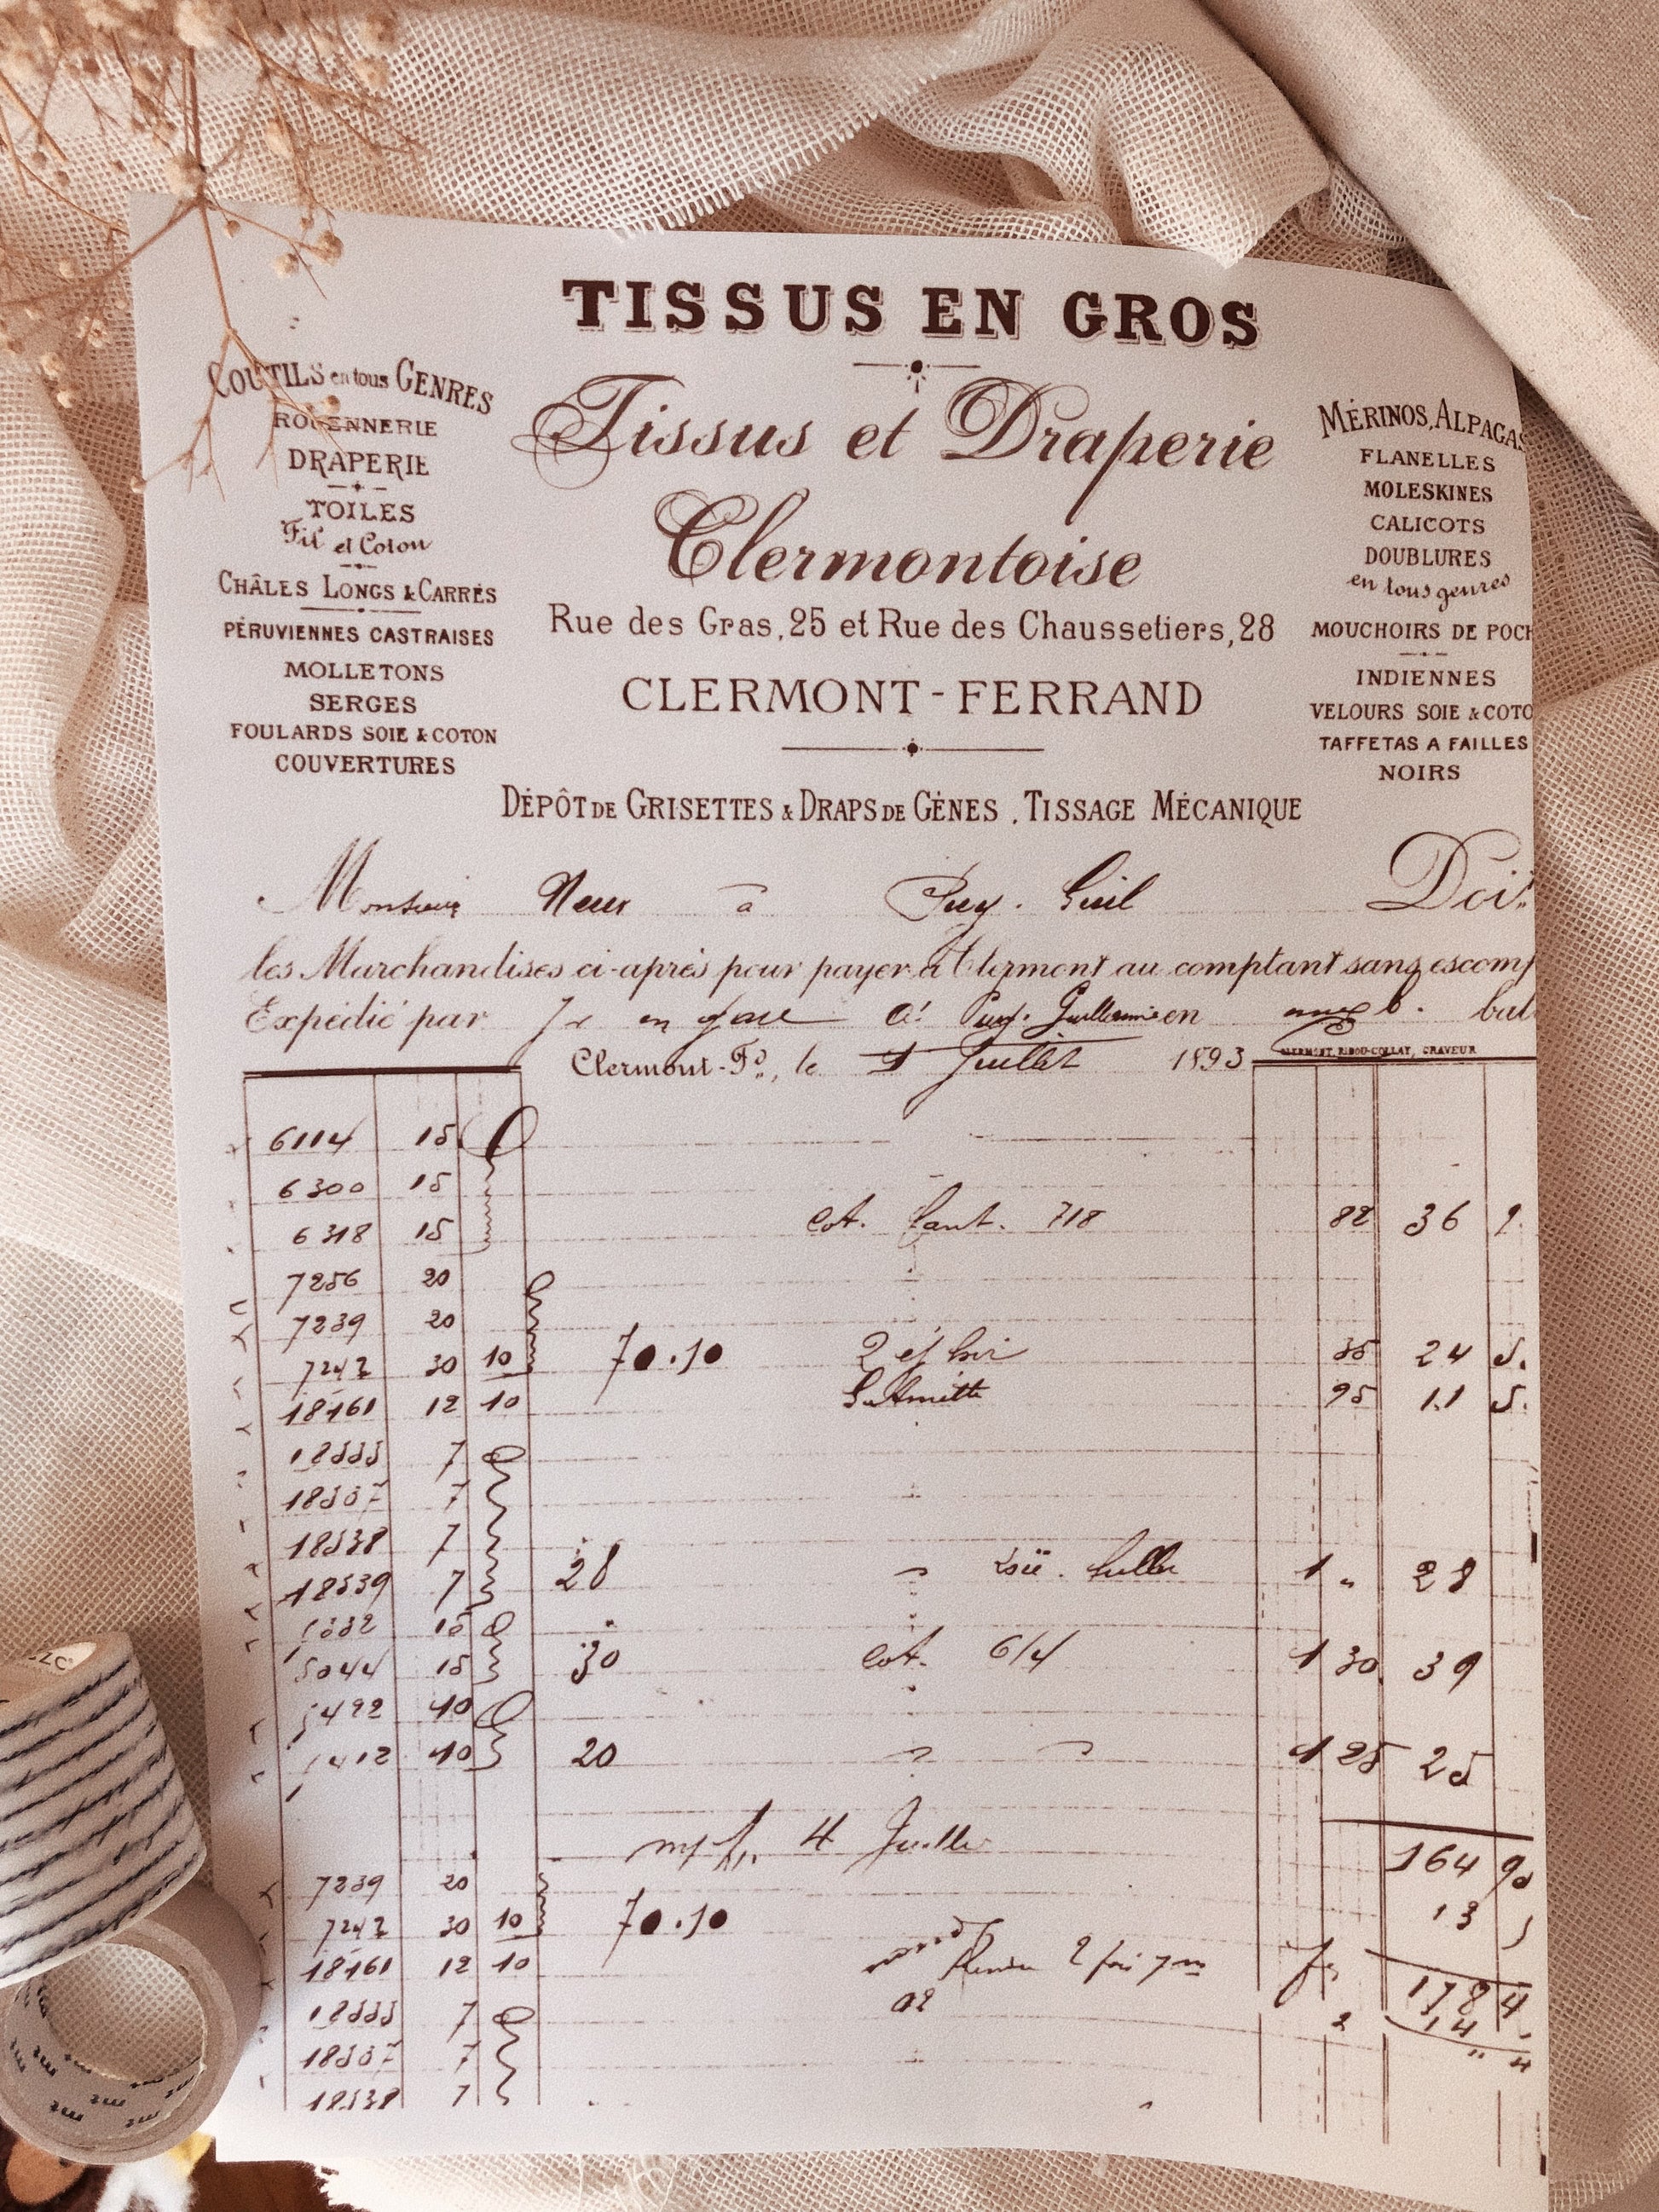 TISSUS EN GROS
COUTILS en tous GENRES
ROUENNERIE
DRAPERIE
TOILES
Fil et Coton
CHÂLES LONGS & CARRÉS
PÉRUVIENNES CASTRAISES
MOLLETONS
SERGES
FOULARDS SOIE & COTON
COUVERTURES
Tissus et Draperie
Clermontoise
Rue des Gras, 25 et Rue des Chaussetiers, 28
CLERMONT-FERRAND
MÉRINOS, ALPAGAS
FLANELLES
MOLESKINES
CALICOTS
DOUBLURES
en tous genres
MOUCHOIRS DE POCH
INDIENNES
VELOURS SOIE & COTO
TAFFETAS A FAILLES
NOIRS
DÉPÔT DE GRISETTES & DRAPS DE GÊNES . TISSAGE MÉCANIQUE
Monsieur à Puy. Doit
les Marchandises ci-après pour payer à Clermont au comptant sans escomp
Expédié par en gare à Puy. en bal
Clermont-Fd., le 1 Juillet 1893
CLERMONT, RIBOU-COLLAY, GRAVEUR
6114 15
6300 15
6318 15 cot. fant. 718 82 36 9.
7256 20
7239 20
7242 30 10 70.10 35 24 5.
18161 12 10 95 11 5.
18555 7
18507 7
18538 7
18539 7 28 1 " 28
15
5044 15 30 cot. 6/4 1 30 39
10
10 20 1 25 25
4 164 90
7239 20 13
7242 30 10 70.10
18161 12 10 2 178 4
18555 7 2 14
18507 7
18538 7